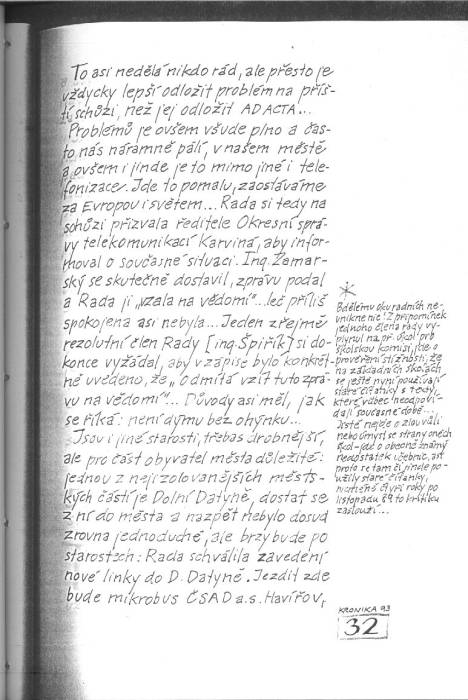 To asi nedělá nikdo rád, ale přesto je
vždycky lepší odložit problém na příš-
tí schůzi, než jej odložit AD ACTA...
Problémů je ovšem všude plno a čas-
to nás náramně pálí, v našem městě
a ovšem i jinde je to mimo jiné i tele-
fonizace. Jde to pomalu, zaostáváme
za Evropou i světem... Rada si tedy na
schůzi přizvala ředitele Okresní sprá-
vy telekomunikací Karviná, aby infor-
moval o současné situaci. Ing. Zamar-
ský se skutečně dostavil, zprávu podal
a Rada ji „vzala na vědomí"... leč příliš
spokojena asi nebyla... Jeden zřejmě
rezolutní člen Rady [ing. Špiřík] si do-
konce vyžádal, aby v zápise bylo konkrét-
ně uvedeno, že „odmítá vzít tuto zprá-
vu na vědomí"... Důvody asi měl, jak
se říká: není dýmu bez ohýnku...
Jsou i jiné starosti, třebas drobnější,
ale pro část obyvatel města důležité:
jednou z nejizolovanějších městs-
kých částí je Dolní Datyně, dostat se
z ní do města a nazpět nebylo dosud
zrovna jednoduché, ale brzy bude po
starostech: Rada schválila zavedení
nové linky do D. Datyně. Jezdit zde
bude mikrobus ČSAD a.s. Havířov,
*
Bdělému oku radních ne-
unikne nic! Z připomínek
jednoho člena rady vy-
plynul na př. úkol pro
školskou komisi, jde o
prověření stížnosti, že
na základních školách
se ještě nyní používají
staré čítanky s texty,
které vůbec neodpoví-
dají současné době...
Jistě nejde o zlou vůli
nebo úmysl se strany oněch
škol - jde o obecně známý
nedostatek učebnic, ast
proto se tam či jinde po-
užily staré čítanky,
nicméně čtyři roky po
listopadu 89 to kritiku
zaslouží...
KRONIKA 93
32